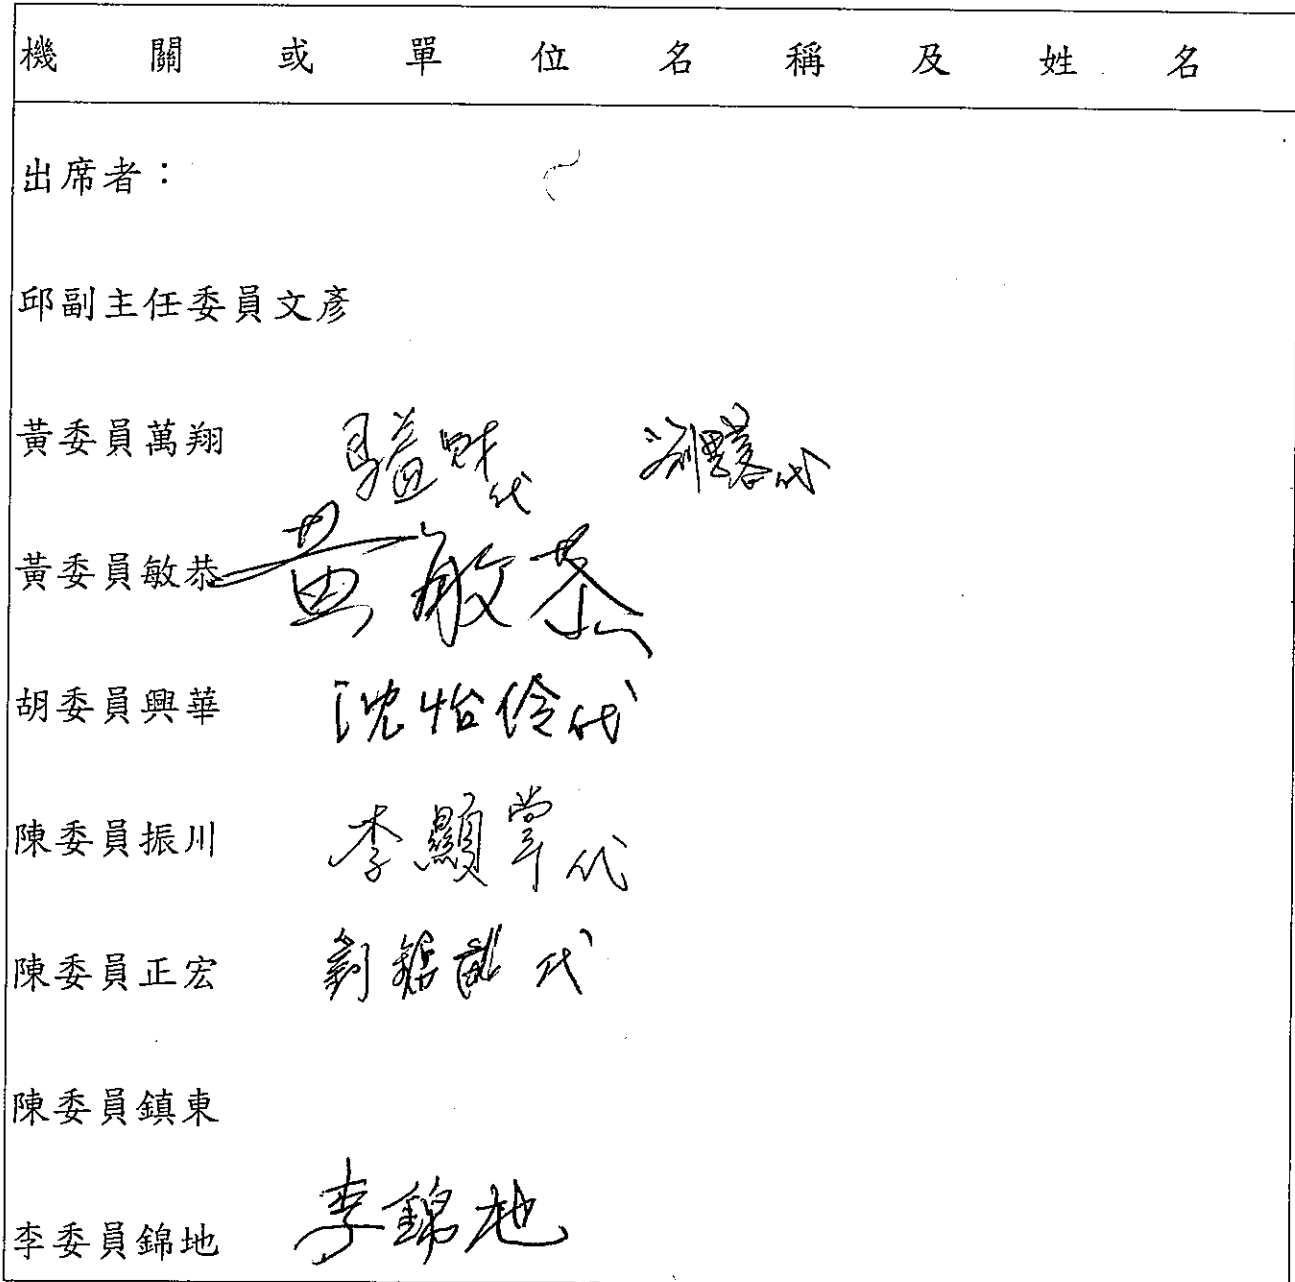 機關或單位名稱及姓名
出席者：
邱副主任委員文彥
黃委員萬翔 代 代
黃委員敏恭 黃敏恭
胡委員興華 沈怡伶代
陳委員振川 李顯掌代
陳委員正宏 劉 代
陳委員鎮東
李委員錦地 李錦地